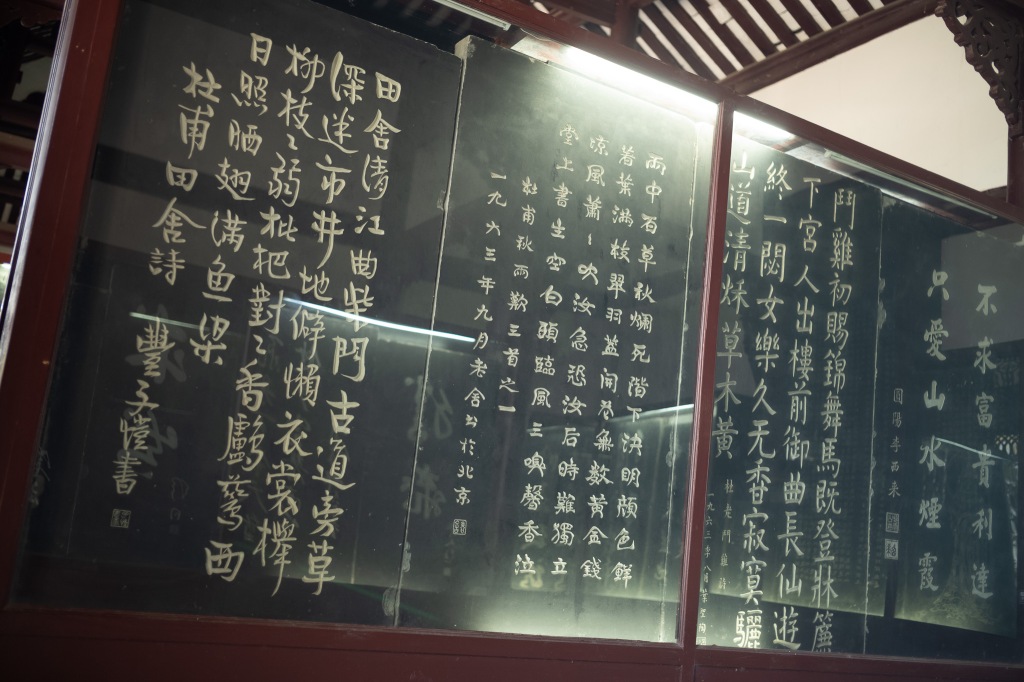 不求富貴利達
只愛山水煙霞
鬥雞初賜錦舞馬既登牀簾
下宮人出樓前御曲長仙遊
終一閟女樂久无香寂寞驪
山道清秋草木黃
杜老鬥雞詩
雨中百草秋爛死階下決明顏色鮮
著葉滿枝翠羽蓋開花無数黃金錢
涼風蕭〻吹汝急恐汝后時難獨立
堂上書生空白頭臨風三嗅馨香泣
杜甫秋雨歎三首之一
一九六三年九月老舍书於北京
田舍清江曲柴門古道旁草
深迷市井地僻懶衣裳櫸
柳枝〻弱枇杷對〻香鸕鶿西
日照晒翅满鱼梁
杜甫田舍詩
豐子愷書